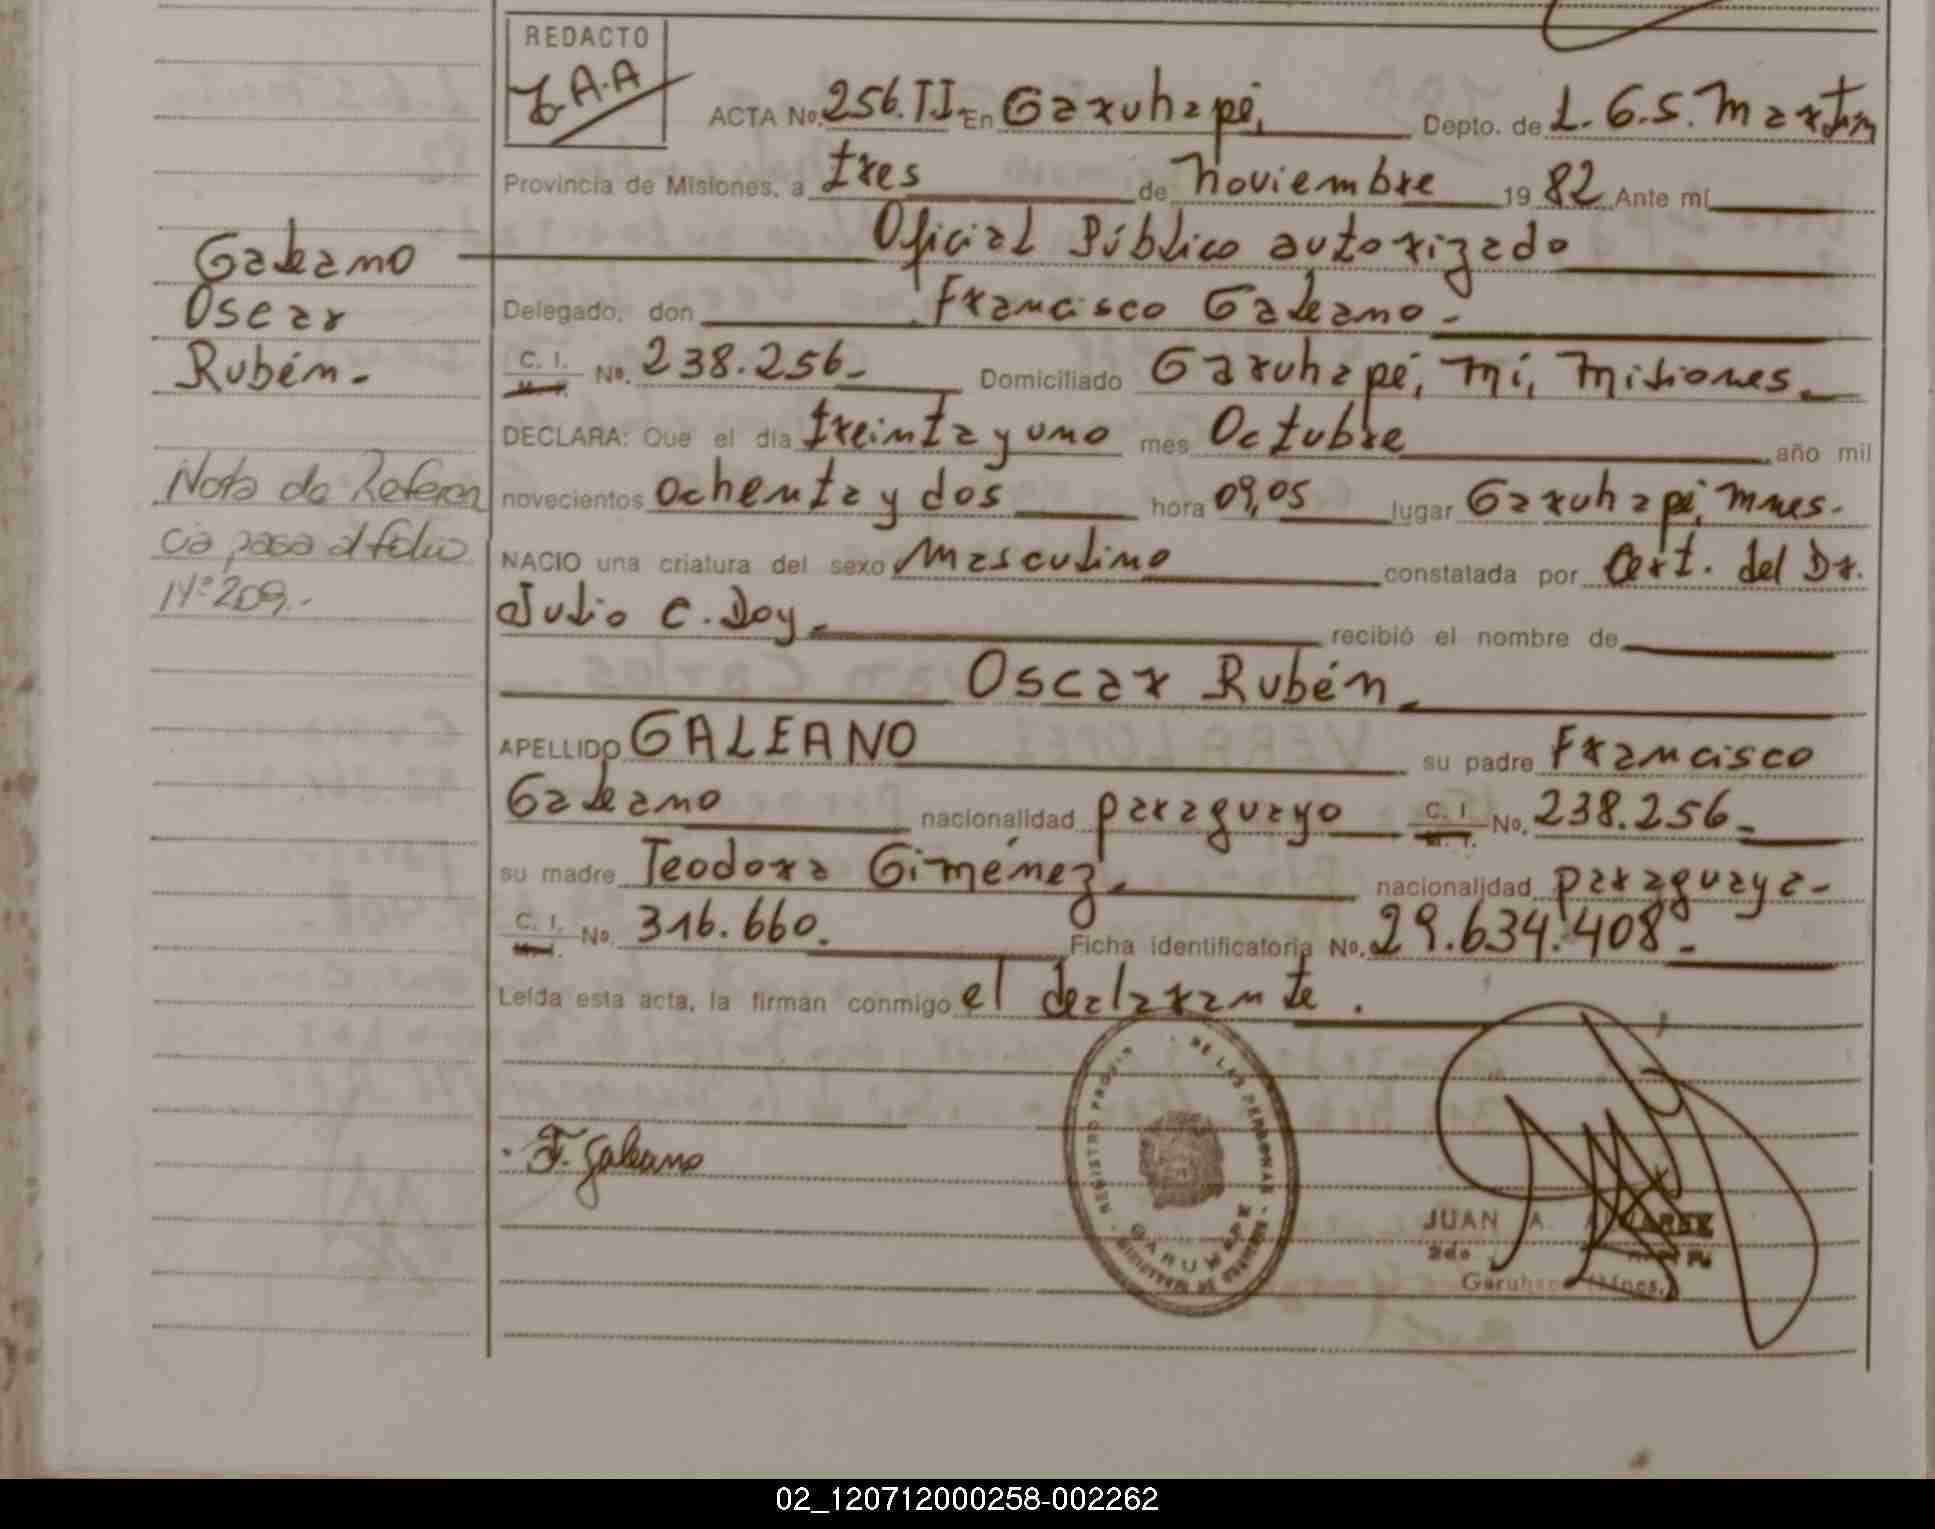 REDACTO
J.A.A
ACTA No. 256.TI. En Garuhapé, Depto. de L.G.S.Martín
Provincia de Misiones, a tres de noviembre 1982 Ante mí
Oficial Público autorizado
Delegado, don Francisco Galeano.-
C. I. No. 238.256.- Domiciliado Garuhapé, Mí, Misiones.
DECLARA: Que el día treinta y uno mes Octubre año mil
novecientos ochenta y dos hora 09,05 lugar Garuhapé, Mnes.-
NACIO una criatura del sexo Masculino constatada por Cert. del Dr.
Julio C. Doy.- recibió el nombre de
Oscar Rubén.
APELLIDO GALEANO su padre Francisco
Galeano nacionalidad paraguayo C. I. No. 238.256.-
su madre Teodora Giménez.- nacionalidad paraguaya-
C. I. No. 316.660. Ficha identificatoria No. 29.634.408.-
Leída esta acta, la firman conmigo el declarante.
Galeano
Oscar
Rubén.-
Nota de Referen
cia pasa al folio
Nº 209.-
F. Galeano
REGISTRO PROVIN DE LAS PERSONAS
GARUHAPE
JUAN A.
2do
Garuhapé (Mnes.)
02_120712000258-002262